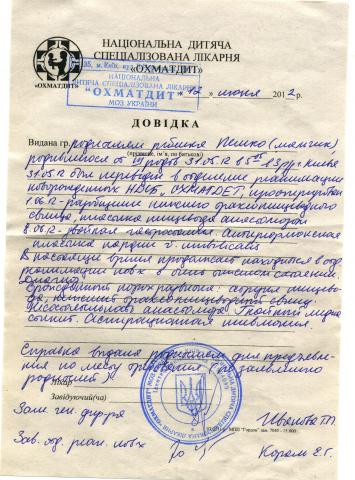 НАЦІОНАЛЬНА ДИТЯЧА
СПЕЦІАЛІЗОВАНА ЛІКАРНЯ
«ОХМАТДИТ»
«ОХМАТДИТ»
35, м. Київ,
НАЦІОНАЛЬНА
ДИТЯЧА СПЕЦІАЛІЗОВАНА ЛІКАРНЯ
"ОХМАТДИТ"
МОЗ УКРАЇНИ
июня 2012 р.
ДОВІДКА
Видана гр. родителям ребенка Пешко (мальчик)
(прізвище, ім'я, по батькові)
родившегося от
31.05.12
31.05.12 был переведен в отделение реанимации
новорожденных НДСБ „ОХМАТДЕТ", прооперирован
1.06.12 - разобщение нижнего трахеопищеводного
свища, пластика пищевода анастомозом
8.06.12 - двойная гастростомия. Антирефлюксная
пластика кардии v. umbilicalis
В настоящее время продолжает находится в отд.
реанимации новх в очень тяжелом состоянии.
Диагноз:
порок развития: атрезия пищево-
да, нижний трахеопищеводный свищ.
Несостоятельность анастомоза. Гнойный медиа-
стинит. Аспирационная пневмония.
Справка выдана родителям для предъявле-
ния по месту требования (по заявлению
родителей)
Лікар
Завідуючий(ча)
Зам ген дир-ра
Иванова Т.П.
Зав. отд. реан. новх
Король Е.Г.